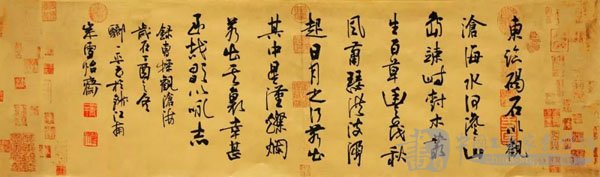 東臨碣石以觀
滄海水何澹澹山
島竦峙樹木叢
生百草豐茂秋
風蕭瑟洪波湧
起日月之行若出
其中星漢燦爛
若出其裏幸甚
至哉歌以咏志
錄曹操觀滄海
歲在丁酉之冬
一平書於錦江南
岸雪怡齋